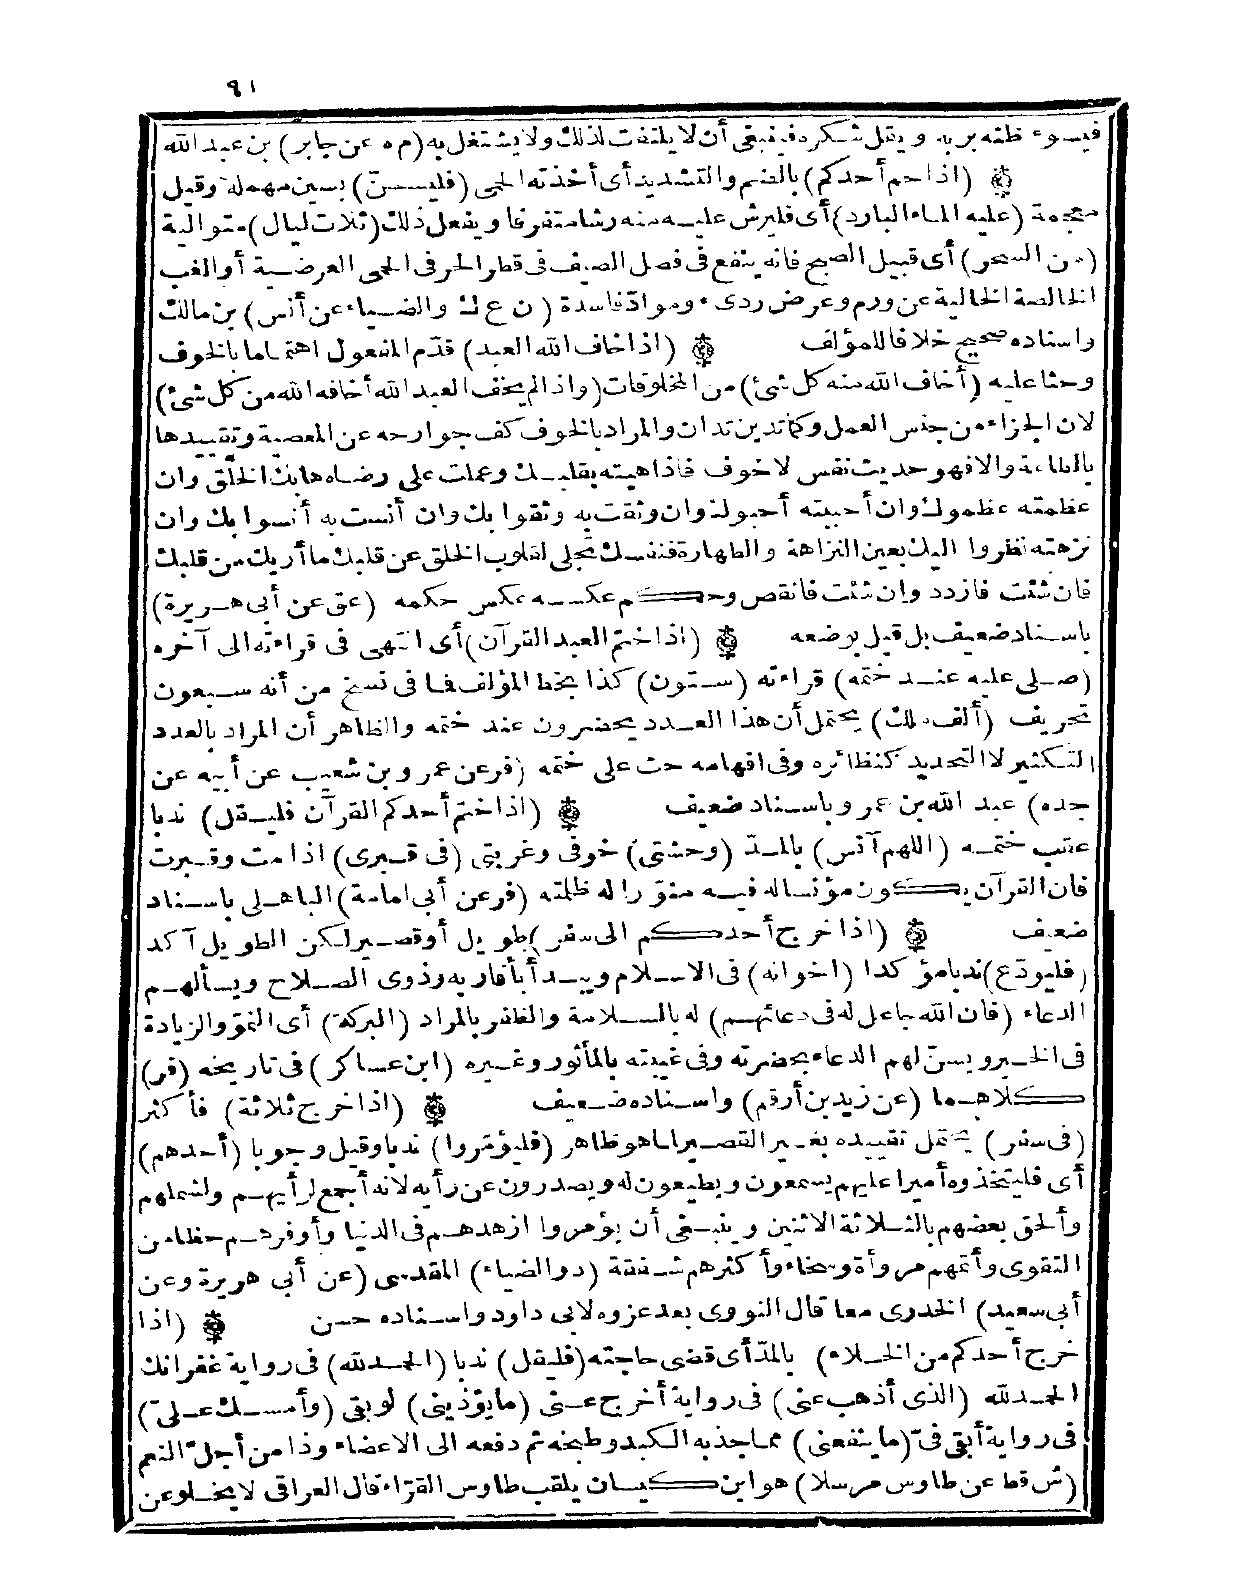 ٩١
فيسوء ظنه بربه ويقل شكره فينبغى أن لا يلتفت لذلك ولا يشتغل به (م ه عن جابر) بن عبد الله
(اذا حم أحدكم) بالضم والتشديد أى أخذته الحمى (فليسن) بسين مهملة وقيل
معجمة (عليه الماء البارد) أى فليرش عليه منه رشا متفرقا ويفعل ذلك (ثلاث ليال) متوالية
(من السحر) أى قبيل الصبح فانه ينفع فى فصل الصيف فى قطر الحر فى الحمى العرضية أو الغب
الخالصة الخالية عن ورم وعرض ردىء ومواد فاسدة (ن ع ك والضياء عن أنس) بن مالك
واسناده صحيح خلافا للمؤلف (اذا خاف الله العبد) قدم المفعول اهتماما بالخوف
وحثا عليه (أخاف الله منه كل شئ) من المخلوقات (واذا لم يخف العبد الله أخافه الله من كل شئ)
لان الجزاء من جنس العمل وكما تدين تدان والمراد بالخوف كف جوارحه عن المعصية وتقييدها
بالطاعة والا فهو حديث نفس لا خوف فاذا هبته بقلبك وعملت على رضاه هابك الخلق وان
عظمته عظموك وان أحببته أحبوك وان وثقت به وثقوا بك وان أنست به أنسوا بك وان
نزهته نظروا اليك بعين النزاهة والطهارة فنفسك تجلى لقلوب الخلق عن قلبك ما أريك من قلبك
فان شئت فازدد وان شئت فانقص وحكم عكسه عكس حكمه (عق عن أبى هريرة)
باسناد ضعيف بل قيل بوضعه (اذا ختم العبد القرآن) أى انتهى فى قراءته الى آخره
(صلى عليه عند ختمه) قراءته (ستون) كذا بخط المؤلف فما فى نسخ من أنه سبعون
تحريف (ألف ملك) يحتمل أن هذا العدد يحضرون عند ختمه والظاهر أن المراد بالعدد
التكثير لا التحديد كنظائره وفى افهامه حث على ختمه (فر عن عمرو بن شعيب عن أبيه عن
جده) عبد الله بن عمرو باسناد ضعيف (اذا ختم أحدكم القرآن فليقل) ندبا
عقب ختمه (اللهم آنس) بالمد (وحشتى) خوفى وغربتى (فى قبرى) اذا مت وقبرت
فان القرآن يكون مؤنسا له فيه منورا له ظلمته (فر عن أبى امامة) الباهلى باسناد
ضعيف (اذا خرج أحدكم الى سفر) طويل أو قصير لكن الطويل آكد
(فليودع) ندبا مؤكدا (اخوانه) فى الاسلام ويبدأ بأقاربه وذوى الصلاح ويسألهم
الدعاء (فان الله جاعل له فى دعائهم) له بالسلامة والظفر بالمراد (البركة) أى النمو والزيادة
فى الخير ويسن لهم الدعاء بحضرته وفى غيبته بالمأثور وغيره (ابن عساكر) فى تاريخه (فر)
كلاهما (عن زيد بن أرقم) واسناده ضعيف (اذا خرج ثلاثة) فأكثر
(فى سفر) يحتمل تقييده بغير القصير لما هو ظاهر (فليؤمروا) ندبا وقيل وجوبا (أحدهم)
أى فليتخذوه أميرا عليهم يسمعون ويطيعون له ويصدرون عن رأيه لانه أجمع لرأيهم ولشملهم
وألحق بعضهم بالثلاثة الاثنين وينبغى أن يؤمروا ازهدهم فى الدنيا وأوفرهم حظا من
التقوى وأتمهم مروأة وسخاء وأكثرهم شفقة (د والضياء) المقدسى (عن أبى هريرة وعن
أبى سعيد) الخدرى معا قال النووى بعد عزوه لابى داود واسناده حسن (اذا
خرج أحدكم من الخلاء) بالمد أى قضى حاجته (فليقل) ندبا (الحمد لله) فى رواية غفرانك
الحمد لله (الذى أذهب عنى) فى رواية أخرج عنى (ما يؤذينى) لو بقى (وأمسك على)
فى رواية أبقى فى (ما ينفعنى) مما جذبه الكبد وطبخه ثم دفعه الى الاعضاء وذا من أجل النعم
(ش قط عن طاوس مرسلا) هو ابن كيسان يلقب طاوس القراء قال العراقى لا يخلو عن